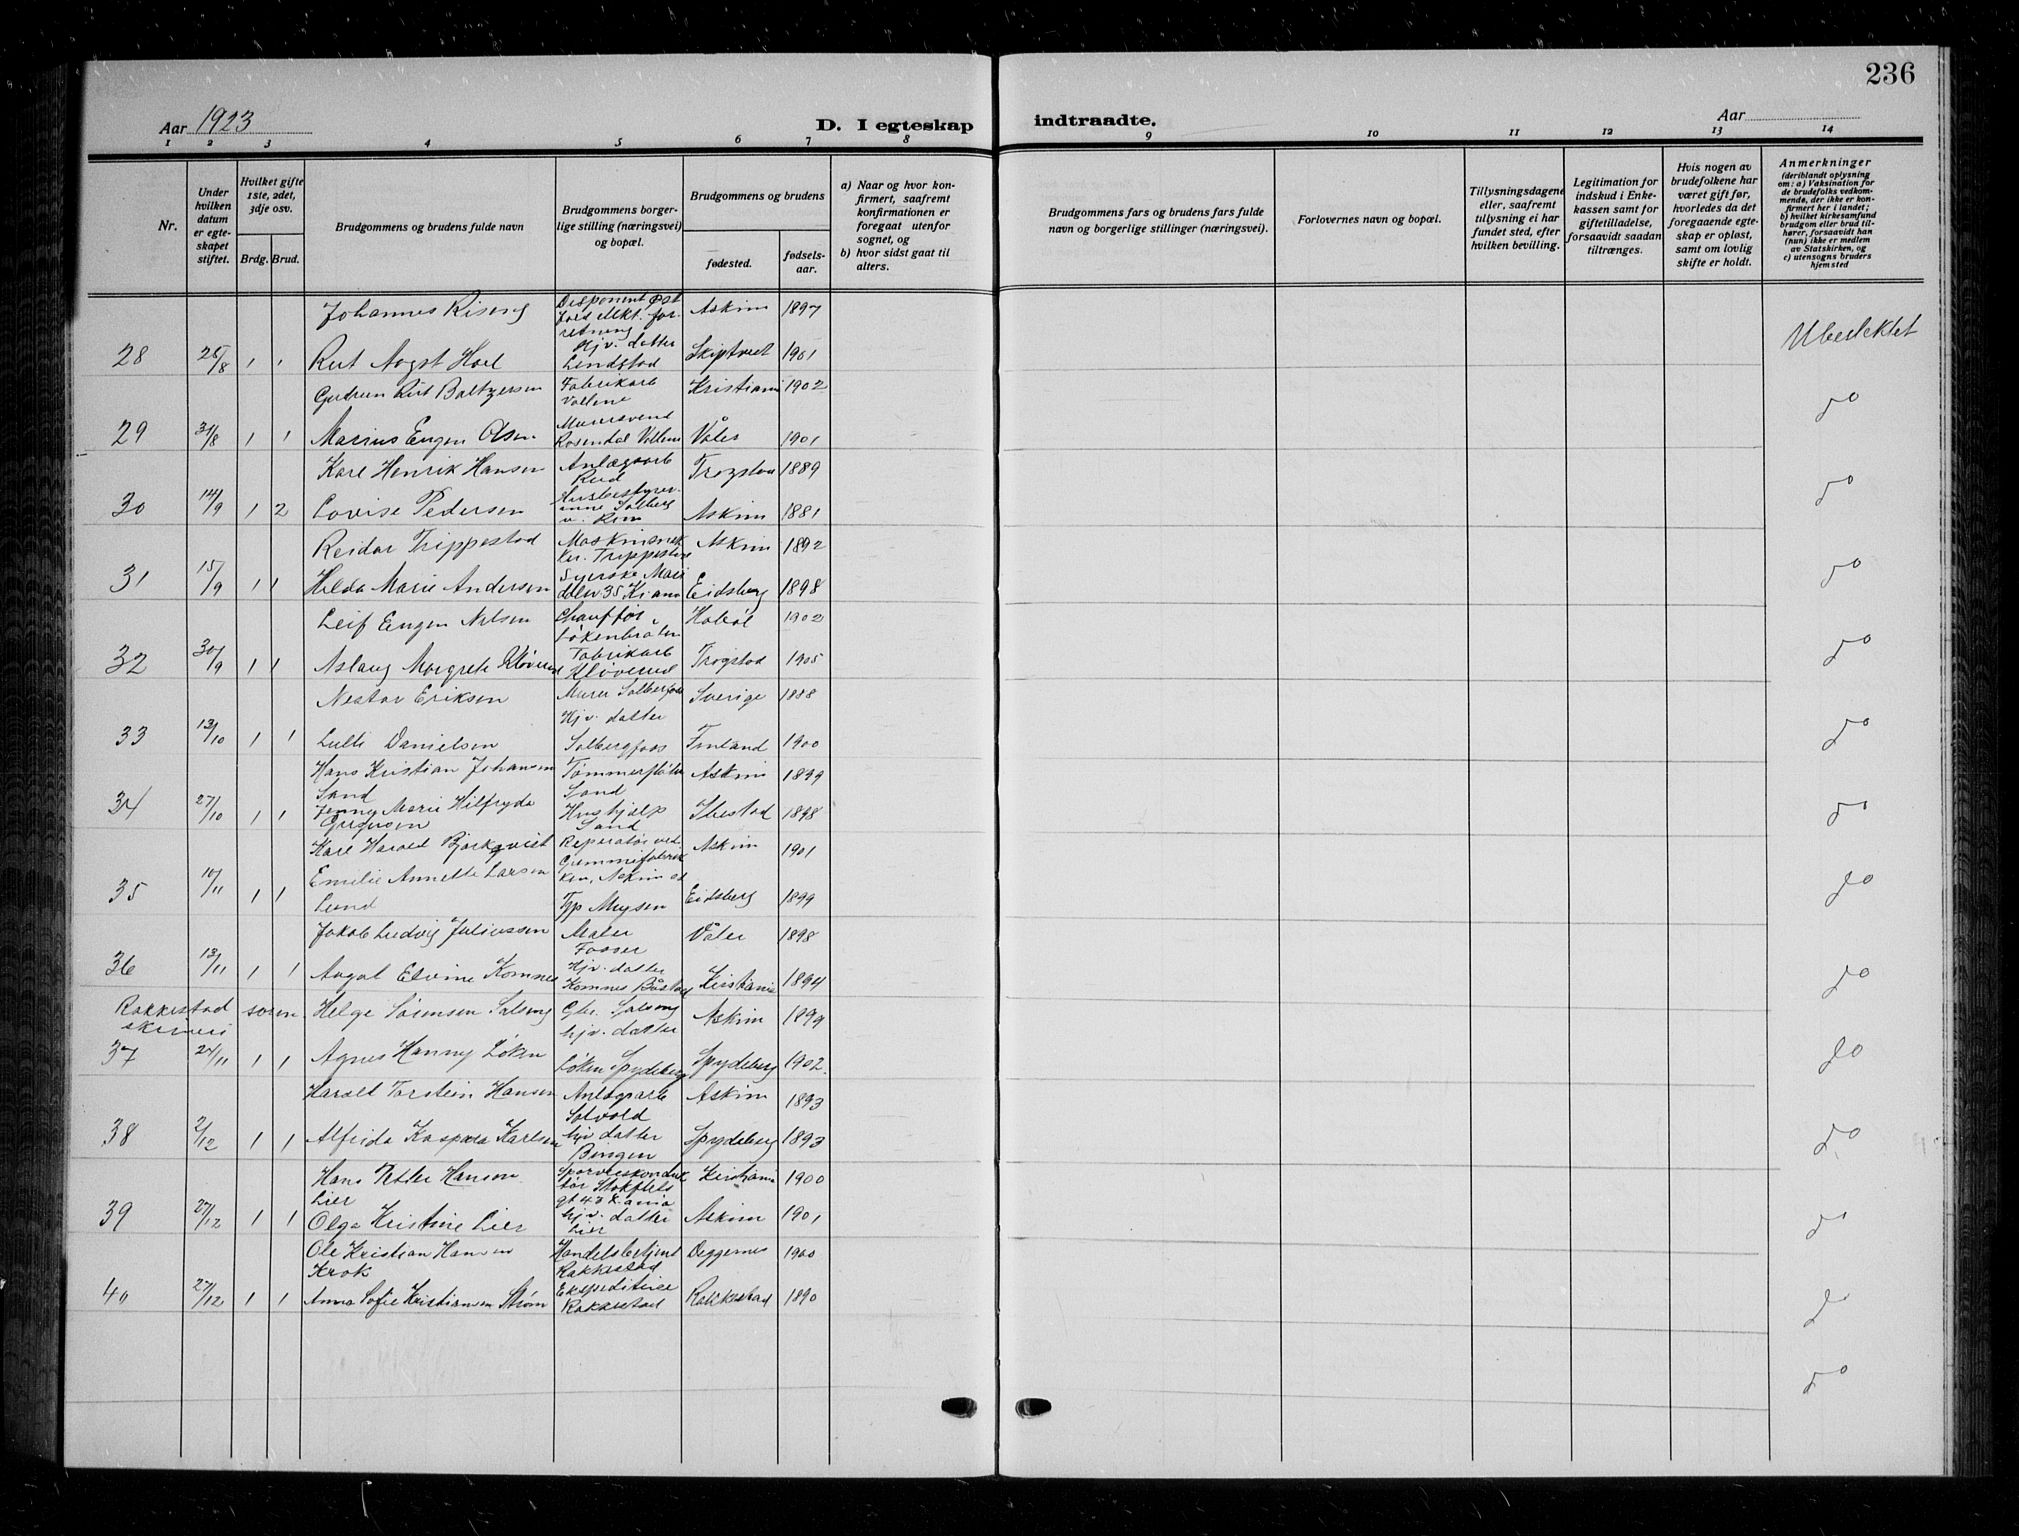 236
Aar 1923
D. I egteskap
indtraadte.
Aar
1 2 3 4 5 6 7 8 9 10 11 12 13 14
Nr.
Under hvilken datum er egteskapet stiftet.
Hvilket gifte 1ste, 2det, 3dje osv.
Brdg. Brud.
Brudgommens og brudens fulde navn
Brudgommens borgerlige stilling (næringsvei) og bopæl.
Brudgommens og brudens
fødested.
fødselsaar.
a) Naar og hvor konfirmert, saafremt konfirmationen er foregaat utenfor sognet, og
b) hvor sidst gaat til alters.
Brudgommens fars og brudens fars fulde navn og borgerlige stillinger (næringsvei).
Forlovernes navn og bopæl.
Tillysningsdagene eller, saafremt tillysning ei har fundet sted, efter hvilken bevilling.
Legitimation for indskud i Enkekassen samt for giftetilladelse, forsaavidt saadan tiltrænges.
Hvis nogen av brudefolkene har været gift før, hvorledes da det foregaaende egteskap er opløst, samt om lovlig skifte er holdt.
Anmerkninger
(deriblandt oplysning om: a) Vaksination for de brudefolks vedkommende, der ikke er konfirmert her i landet;
b) hvilket kirkesamfund brudgom eller brud tilhører, forsaavidt han (hun) ikke er medlem av Statskirken, og
c) utensogns bruders hjemsted
Johannes Riseng Disponent Øst Askim 1897
28 25/8 1 1 Rut Aagot Hoel Hjv. datter Lendstad Skiptvet 1901 Ubeslektet
Gudrun Rut Baltzersen Fabrikarb Vollene Kristiania 1902
29 31/8 1 1 Marius Eugen Olsen Murersvend Rosendal Vollene Våler 1901 do
Karl Henrik Hansen Anlægsarb Rud Trøgstad 1889
30 14/9 1 2 Lovise Pedersen Husbestyrerinne Solberg Askim 1881 do
Reidar Trippestad Askim 1892
31 15/9 1 1 Helda Marie Andersen Syerske Eidsberg 1898 do
Leif Eugen Nilsen Chauffør Løkenbråten Hobøl 1902
32 30/9 1 1 Aslaug Margrete Kløverud Fabrikarb Kløverud Trøgstad 1905 do
Nestor Eriksen Murer Solbergfoss Sverige 1888
33 13/10 1 1 Lulli Danielsen Hjv. datter Solbergfoss Finland 1900 do
Hans Kristian Johansen Sand Tømmerfløter Sand Askim 1899
34 27/10 1 1 Jenny Marie Hilfryda Hushjælp Sand Ibestad 1898 do
Karl Harald Bjørkqvist Reparatør ved Gummifabrikken, Askim st Askim 1901
35 10/11 1 1 Emilie Annette Larsen Lund Mysen Eidsberg 1899 do
Jakob Ludvig Juliussen Maler Fosser Våler 1898
36 13/11 1 1 Aagot Elvine Komnes Hjv. datter Komnes Båstad Kristiania 1894 do
Rakkestad sorenskriveri
Helge Sørensen Solseng Gbr. Solseng Askim 1899
37 24/11 1 1 Agnes Hanny Løken hjv. datter Løken Spydeberg Spydeberg 1902 do
Harald Torstein Hansen Anlægsarb Solvold Askim 1893
38 2/12 1 1 Alfrida Kaspara Karlsen hjv datter Bingen Spydeberg 1893 do
Hans Petter Hanson Lier Sporveiskonduktør Kristiania 1900
39 27/12 1 1 Olga Kristine Lier hjv. datter Lier Askim 1901 do
Ole Kristian Hansen Krok Handelsbetjent Rakkestad Deggernes 1900
40 27/12 1 1 Anna Sofie Kristiansen Strøm Rakkestad Rakkestad 1890 do
do